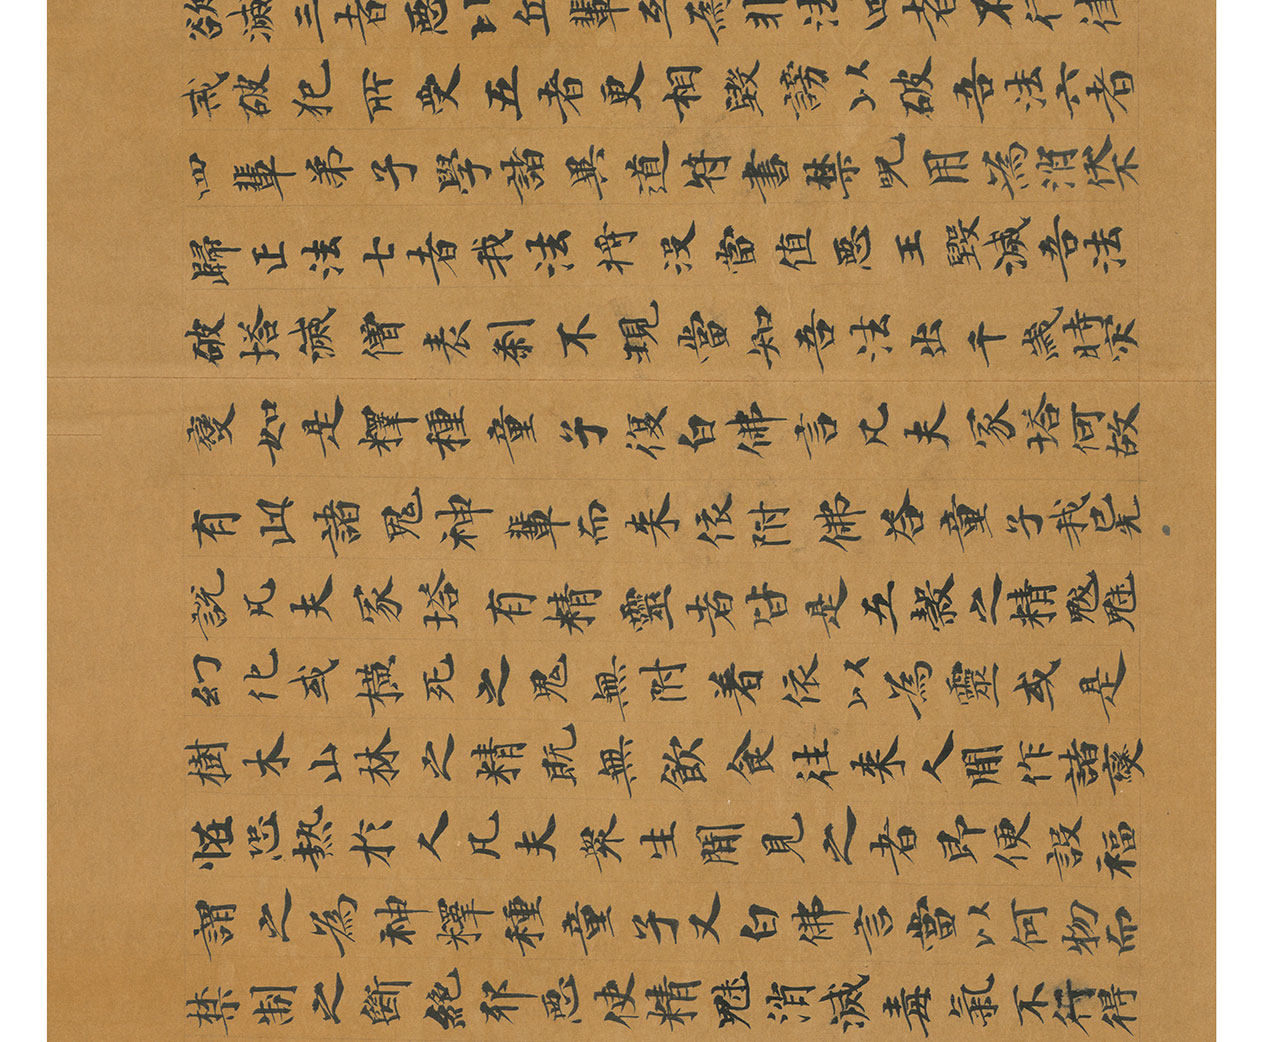 欲滅三者惡比丘輩互為非法四者不行律
戒破犯所受五者更相毀謗以破吾法六者
四輩弟子學諸異道符書禁呪用為消伏不
歸正法七者我法將没當值惡王毀滅吾法
破塔滅僧表刹不現當知吾法出千歲時灾
變如是釋種童子復白佛言凡夫冢塔何故
有此諸鬼神輩而来依附佛荅童子我已先
說凡夫冢塔有精靈者皆是五榖之精魃魅
幻化或橫死之鬼無附着依以為靈或是
樹木山林之精既無飲食往来人間作諸變
恠恐熱於人凡夫衆生聞見之者即便設福
謂之為神釋種童子又白佛言當以何物而
禁制之斷絶邪惡使精魅消滅毒氣不行得